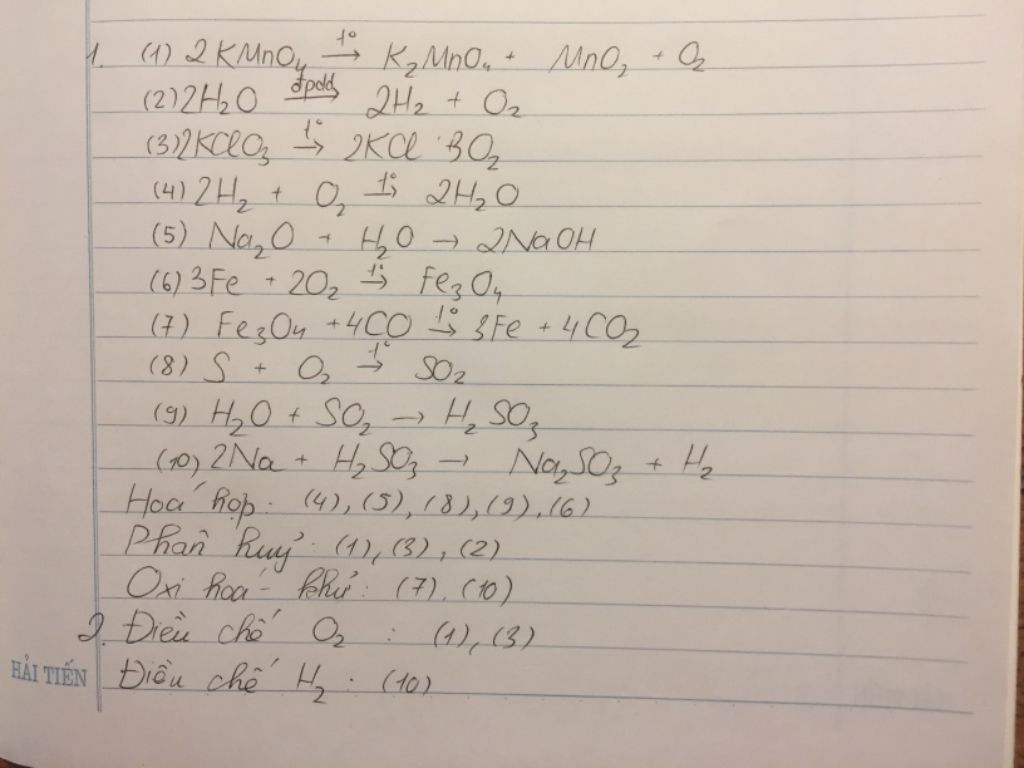 1. (1) 2KMnO₄ —t°→ K₂MnO₄ + MnO₂ + O₂
(2) 2H₂O —đpdd→ 2H₂ + O₂
(3) 2KClO₃ —t°→ 2KCl 3O₂
(4) 2H₂ + O₂ —t°→ 2H₂O
(5) Na₂O + H₂O → 2NaOH
(6) 3Fe + 2O₂ —t°→ Fe₃O₄
(7) Fe₃O₄ + 4CO —t°→ 3Fe + 4CO₂
(8) S + O₂ —t°→ SO₂
(9) H₂O + SO₂ → H₂SO₃
(10) 2Na + H₂SO₃ → Na₂SO₃ + H₂
Hoá hợp: (4), (5), (8), (9), (6)
Phân huỷ: (1), (3), (2)
Oxi hoá - khử: (7), (10)
2. Điều chế O₂ : (1), (3)
HẢI TIẾN Điều chế H₂ : (10)